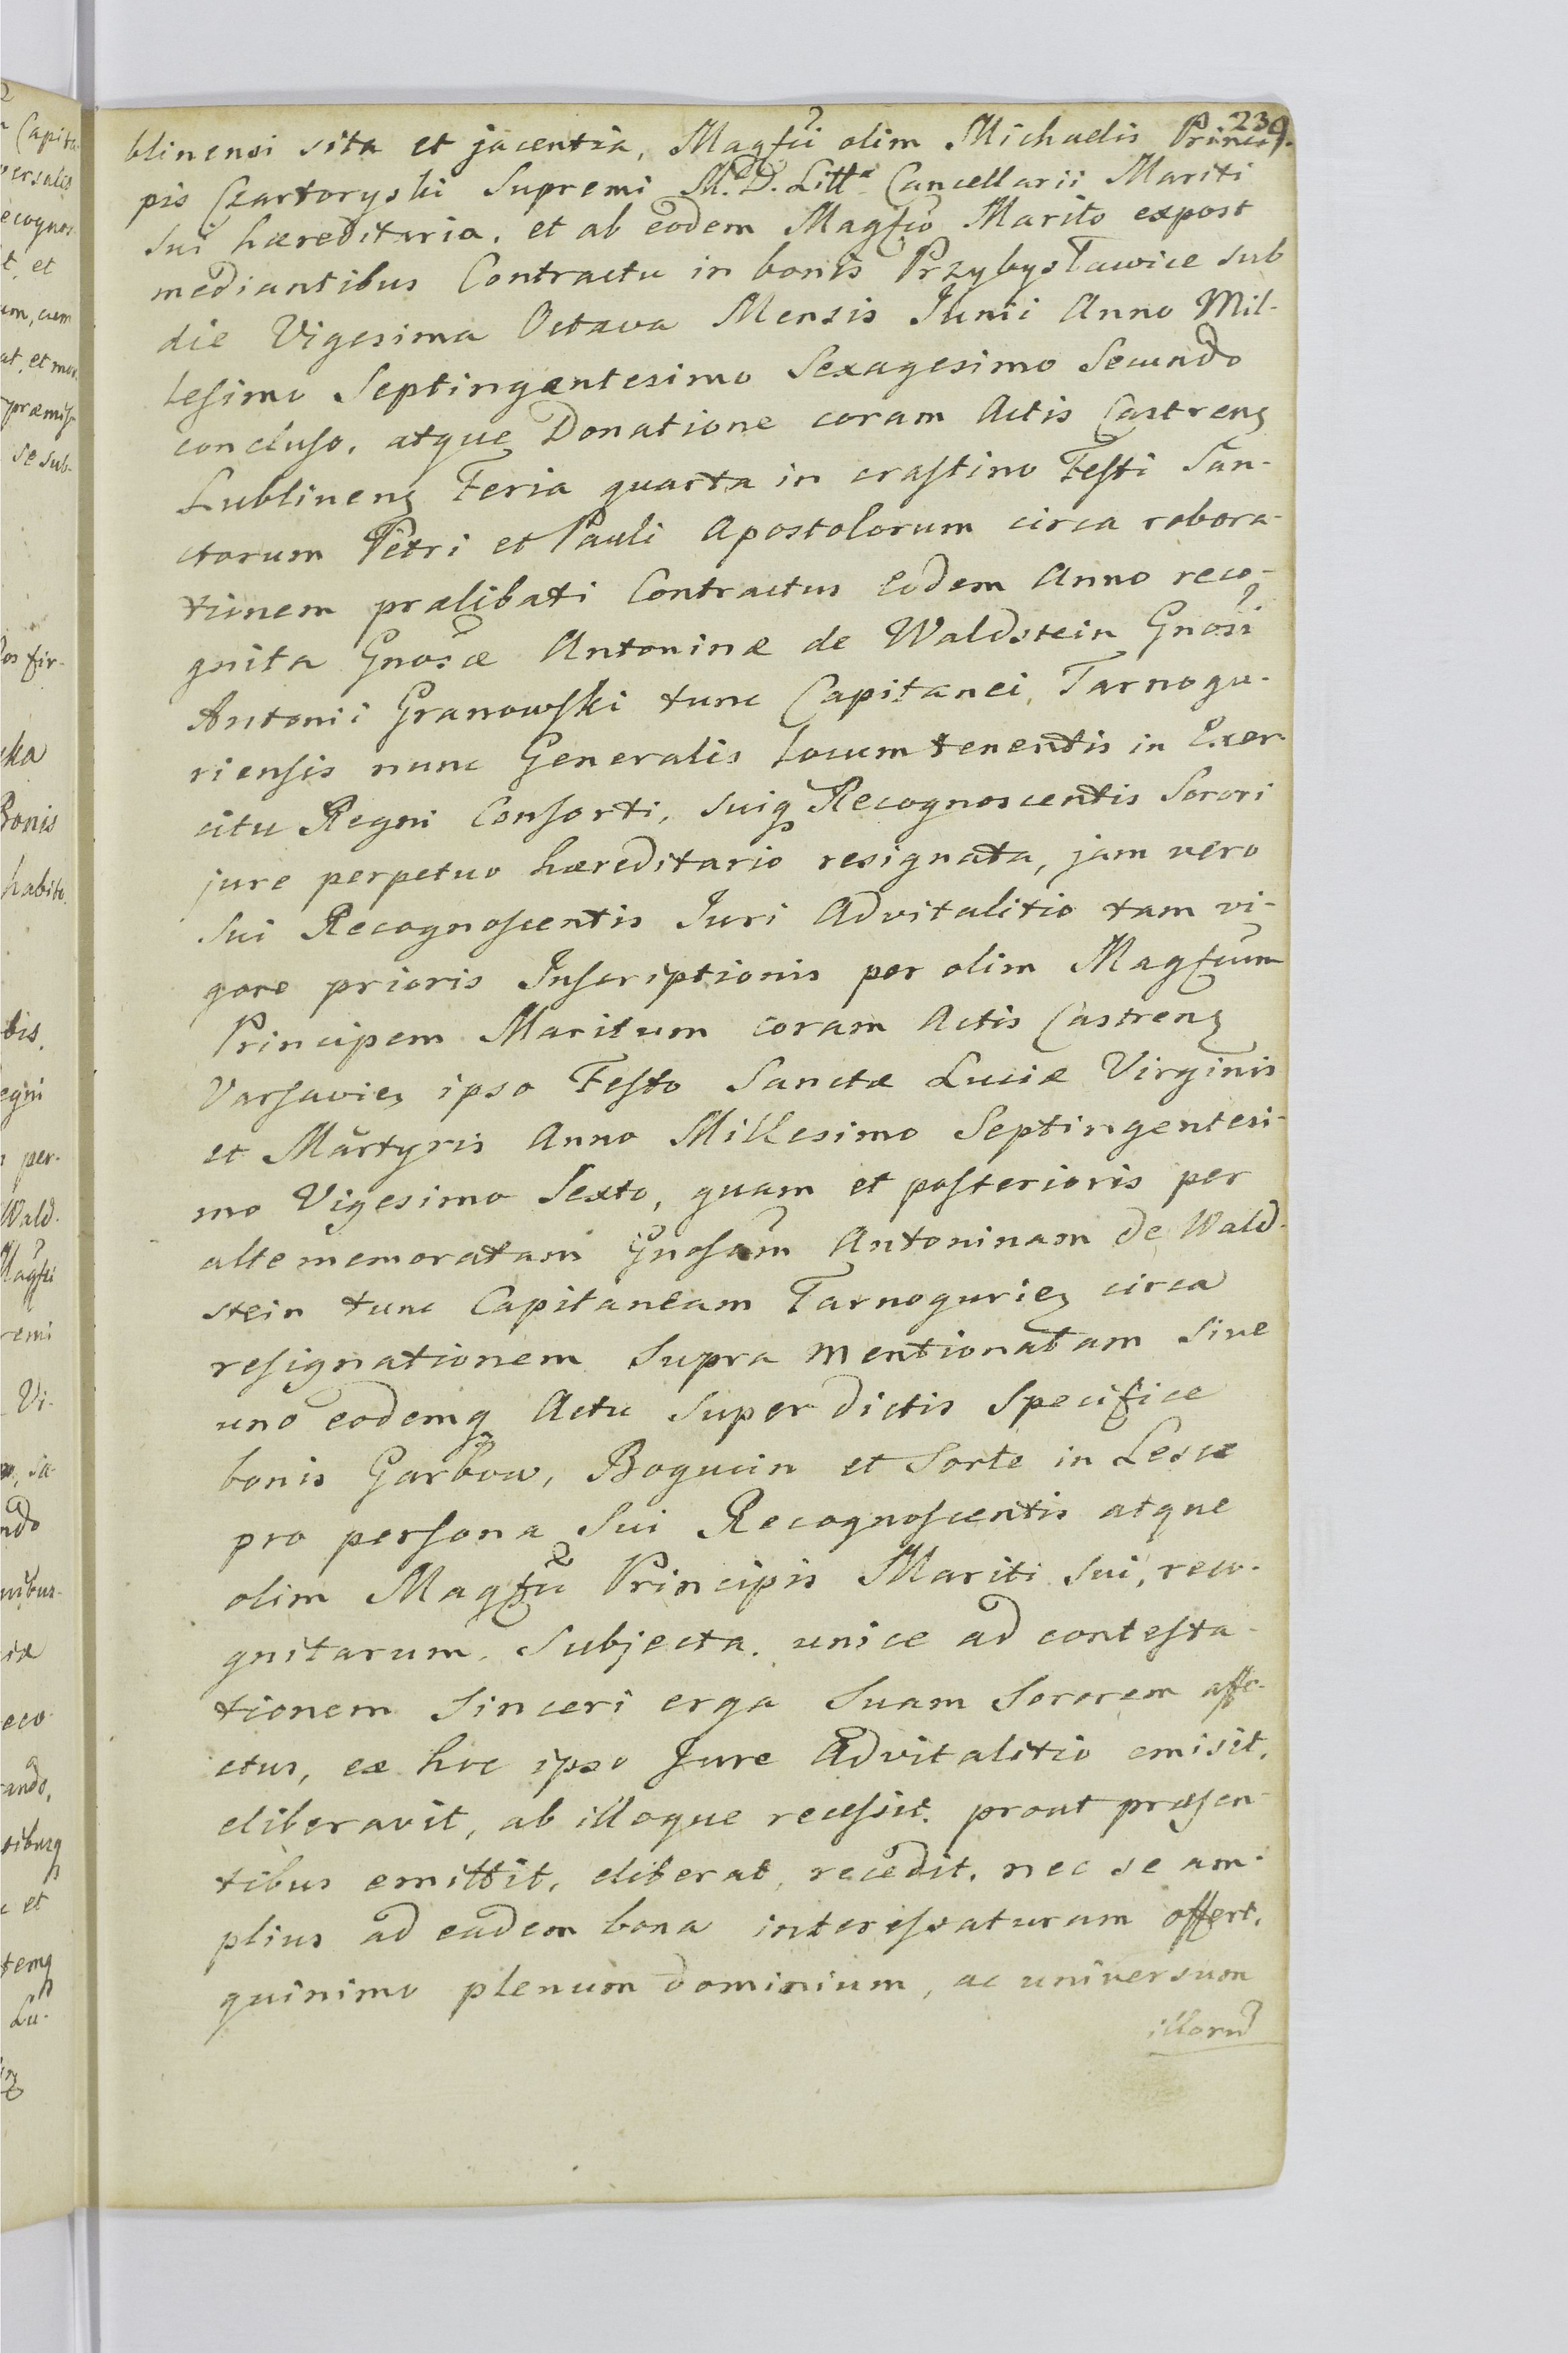 239.
blinensi sita et jacentia, Magfci olim Michaelis Princi-
pis Czartoryski Supremi M. D. Litt. Cancellarii Mariti
sui haereditaria, et ab eodem Magfco Marito expost
mediantibus Contractu in bonis Przybysławice sub
die Vigesima Octava Mensis Junii Anno Mil-
lesimo Septingentesimo Sexagesimo Secundo
concluso, atque Donatione coram Actis Castrenz
Lublinenz Feria quarta in crastino Festi San-
ctorum Petri et Pauli Apostolorum circa robora-
tionem praelibati Contractus eodem Anno reco-
gnita Gnosæ Antoninæ de Waldstein Gnosi
Antonii Granowski tunc Capitanei Tarnogu-
riensis nunc Generalis locumtenentis in Exer-
citu Regni Consorti, suiq Recognoscentis Sorori
jure perpetuo hæreditario resignata, jam vero
sui Recognoscentis Juri Advitalitio tam vi-
gore prioris Inscriptionis per olim Magfcum
Principem Maritum coram Actis Castrenz
Varsaviez ipso Festo Sanctæ Luciæ Virginis
et Martyris Anno Millesimo Septingentesi-
mo Vigesimo Sexto, quam et posterioris per
altememoratam Gnosam Antoninam de Wald-
stein tunc Capitaneam Tarnoguriez circa
resignationem supra mentionatam sive
uno eodemq Actu super dictis specifice
bonis Garbow, Bogucin et Sorte in Lesce
pro persona sui Recognoscentis atque
olim Magfci Principis Mariti sui, reco-
gnitarum subjecta. unice ad contesta-
tionem sinceri erga suam Sororem affe-
ctus, ex hoc ipso Jure Advitalitio emisit,
eliberavit, ab illoque recessit. prout præsen-
tibus emittit, eliberat, recedit, nec se am-
plius ad eadem bona interessaturam offert,
quinimo plenum dominium, ac universum
illorum